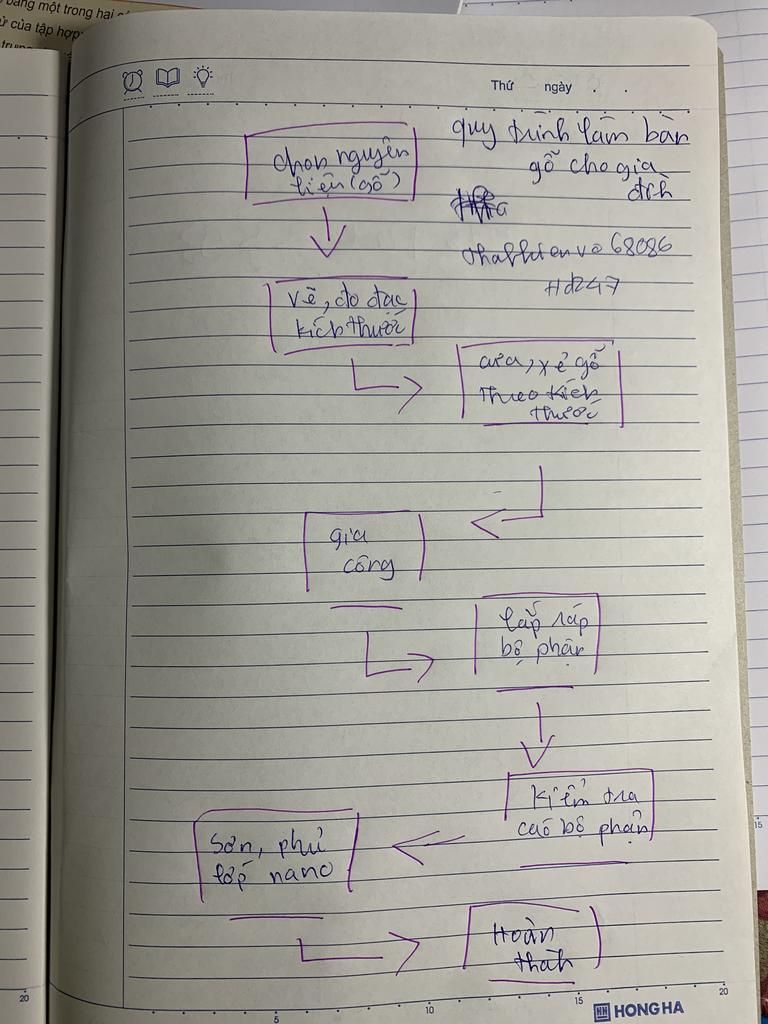 bằng một trong hai
ử của tập hợp:
Thứ ngày . .
quy trình làm bàn
gỗ cho gia
đình
chọn nguyên
liệu (gỗ)
thathienvo 68086
Hd247
vẽ, đo đạc
kích thước
cưa, xẻ gỗ
theo kích
thước
gia
công
lắp ráp
bộ phận
kiểm tra
các bộ phận
Sơn, phủ
lớp nano
Hoàn
thành
20
5
10
15
20
15
HONG HA